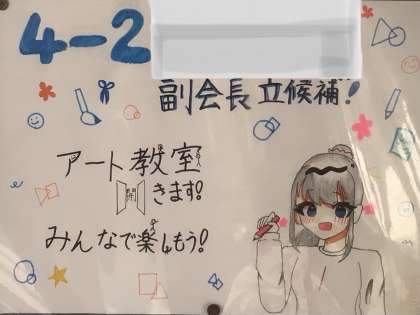 4-2
副会長立候補!
アート教室
開きます!
みんなで楽しもう!